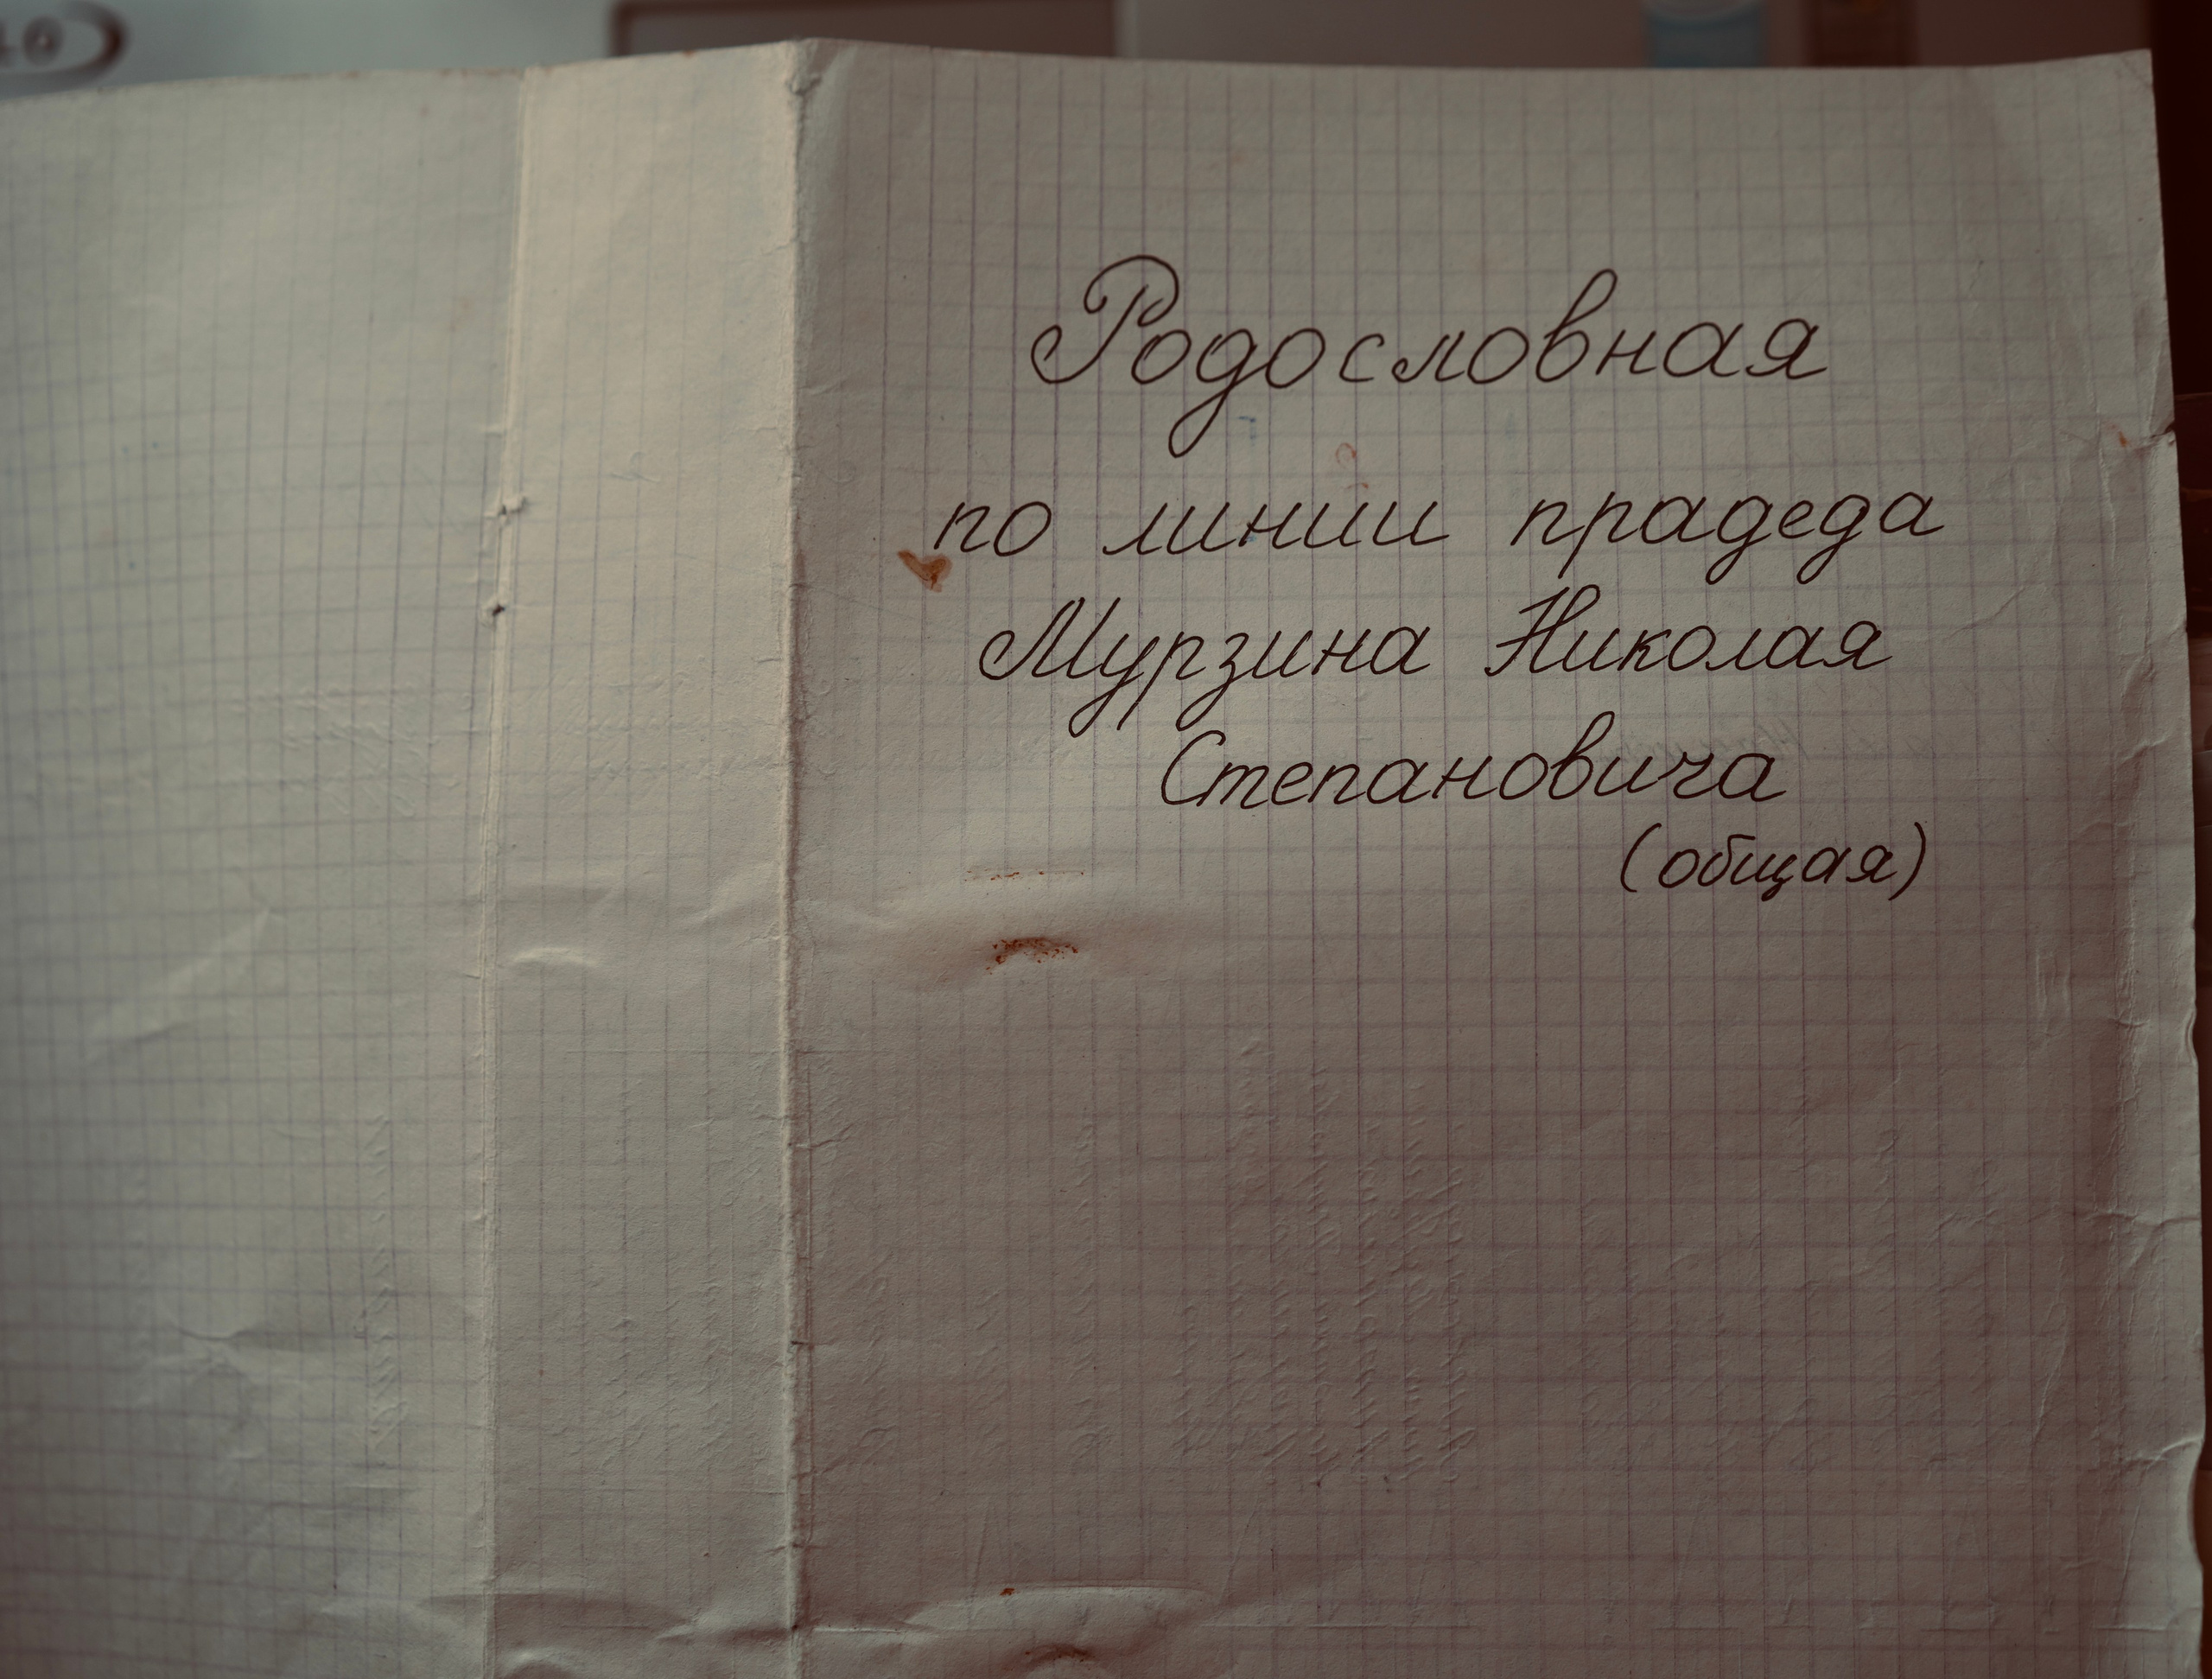 Родословная
по линии прадеда
Мурзина Николая
Степановича
(общая)